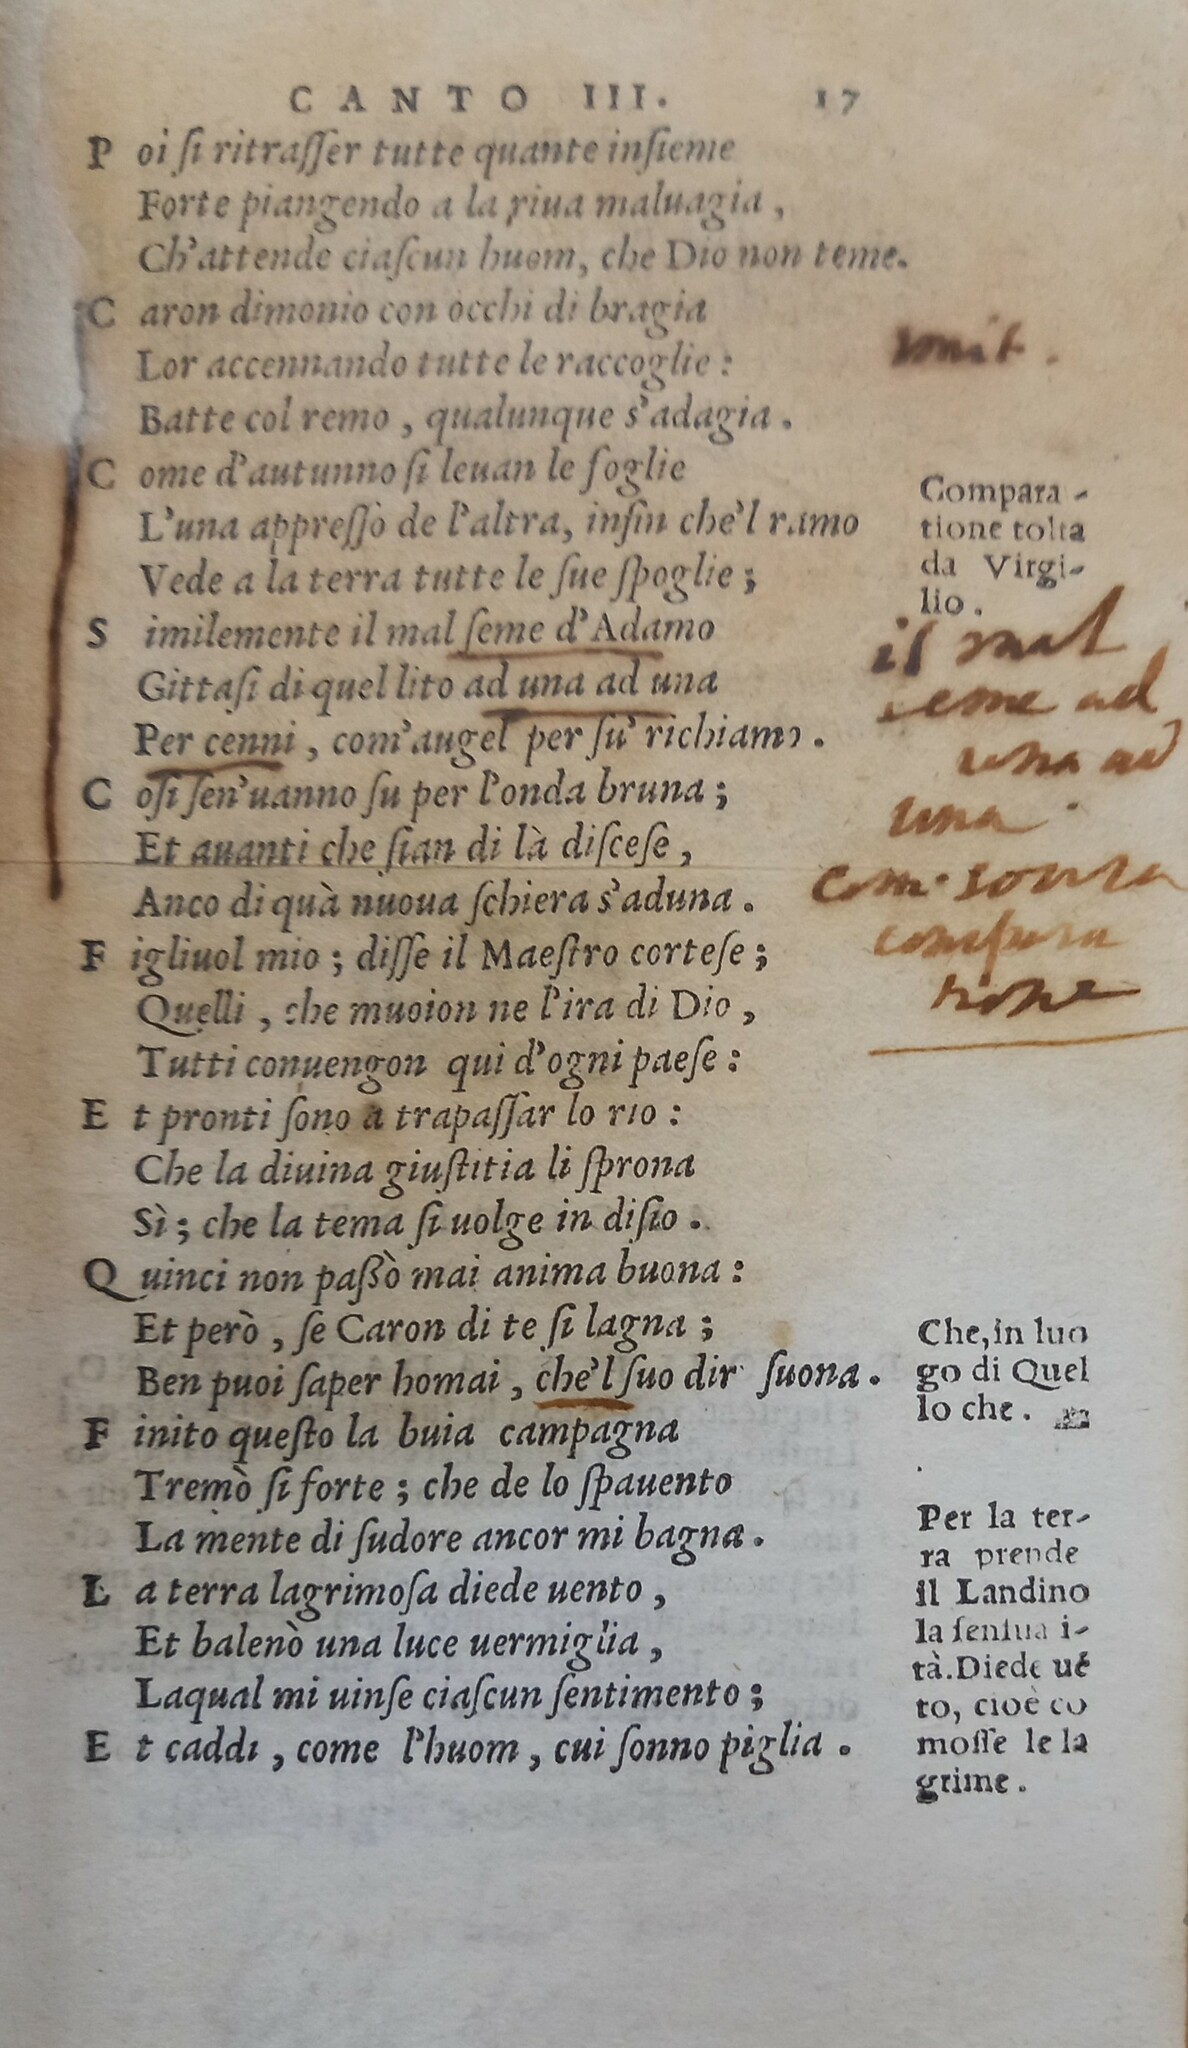 CANTO III. 17
Poi si ritrasser tutte quante insieme
Forte piangendo a la riua maluagia,
Ch'attende ciascun huom, che Dio non teme.
Caron dimonio con occhi di bragia
Lor accennando tutte le raccoglie:
Batte col remo, qualunque s'adagia.
Come d'autunno si leuan le foglie
L'una appresso de l'altra, insin che'l ramo
Vede a la terra tutte le sue spoglie;
Similemente il mal seme d'Adamo
Gittasi di quel lito ad una ad una
Per cenni, com'augel per su' richiamo.
Cosi sen'uanno su per l'onda bruna;
Et auanti che sian di là discese,
Anco di quà nuoua schiera s'aduna.
Figliuol mio; disse il Maestro cortese;
Quelli, che muoion ne l'ira di Dio,
Tutti conuengon qui d'ogni paese:
Et pronti sono a trapassar lo rio:
Che la diuina giustitia li sprona
Sì; che la tema si uolge in disio.
Quinci non passò mai anima buona:
Et però, se Caron di te si lagna;
Ben puoi saper homai, che'l suo dir suona.
Finito questo la buia campagna
Tremò si forte; che de lo spauento
La mente di sudore ancor mi bagna.
La terra lagrimosa diede uento,
Et balenò una luce uermiglia,
Laqual mi uinse ciascun sentimento;
Et caddi, come l'huom, cui sonno piglia.
Compara-
tione tolta
da Virgi-
lio.
il mal
seme ad
una ad
una
compara
tione
Che, in luo
go di Quel
lo che.
Per la ter-
ra prende
il Landino
la sensua i-
tà. Diede ué
to, cioè co
mosse le la
grime.